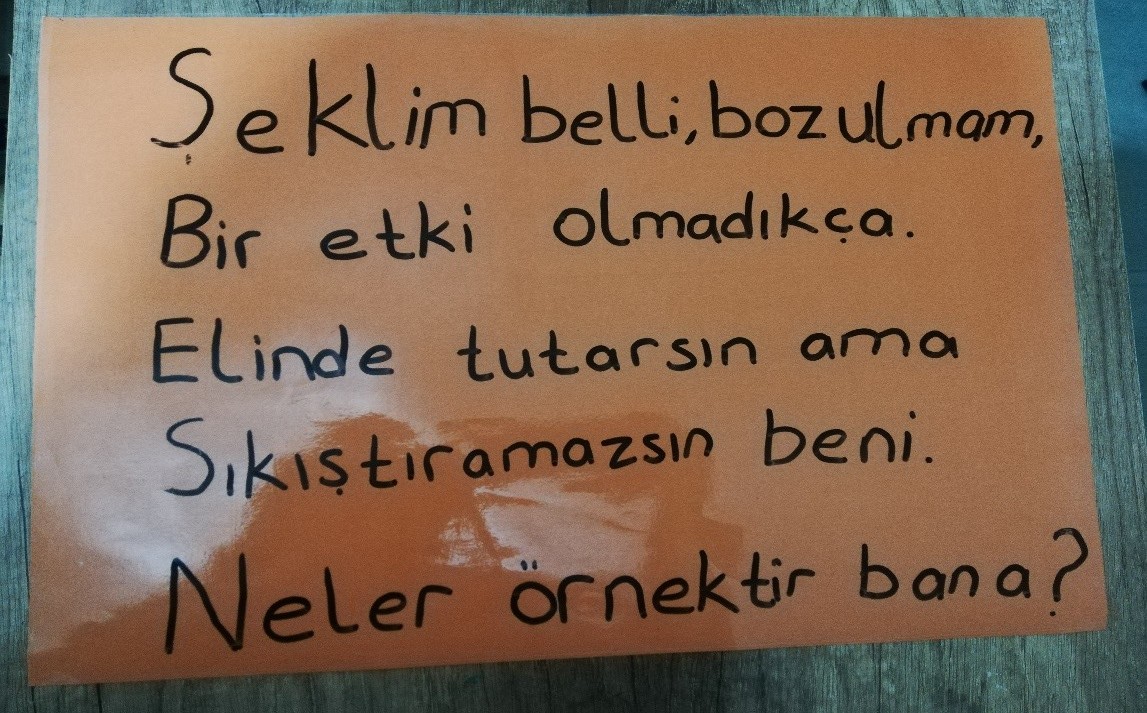 Şeklim belli, bozulmam,
Bir etki olmadıkça.
Elinde tutarsın ama
Sıkıştıramazsın beni.
Neler örnektir bana?